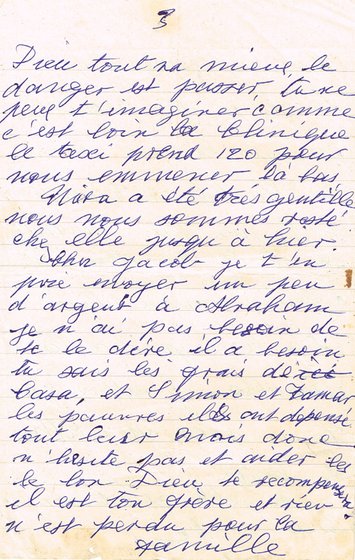 3
Dieu tout va mieux, le
danger est passer, tu ne
peux t'imaginer comme
c'est loin la Clinique
le taxi prend 120 pour
nous emmener là bas
Nora a été très gentille
nous nous sommes resté
chez elle jusqu'à hier.
Cher Jacob je t'en
prie envoyer un peu
d'argent à Abraham
je n'ai pas besoin de
te le dire il a besoin
tu sais les frais de
Casa, et Simon et Tamar
les pauvres ils ont dépensé
tout leur mois donc
n'hésite pas et aider les
le bon Dieu te recompensera
il est ton frère et rien
n'est perdu pour la
famille